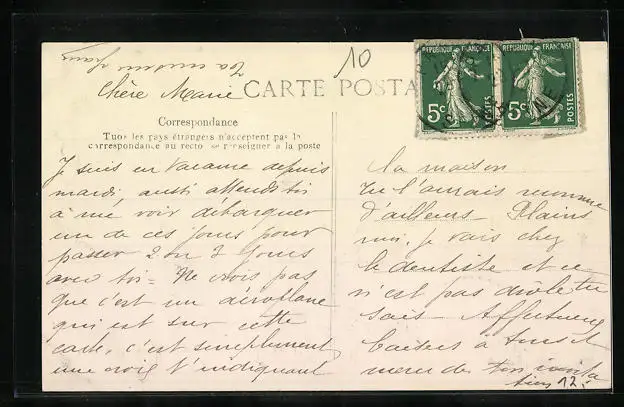 10
Chère Marie
CARTE POSTA
RÉPUBLIQUE FRANÇAISE
5c
POSTES
RÉPUBLIQUE FRANÇAISE
5c
POSTES
Correspondance
Tous les pays étrangers n'acceptent pas la
correspondance au recto se renseigner à la poste
Je suis en vacance depuis
mardi, aussi attends toi
à me voir débarquer
un de ces jours pour
passer 2 ou 3 jours
avec toi - Ne crois pas
que c'est un aéroplane
qui est sur cette
carte, c'est simplement
une croix t'indiquant
la maison
Tu l'aurais reconnue
d'ailleurs - Plains
moi, je vais chez
le dentiste et ce
n'est pas drôle tu
sais - Affectueux
baisers à tous et
merci de ton
12.-